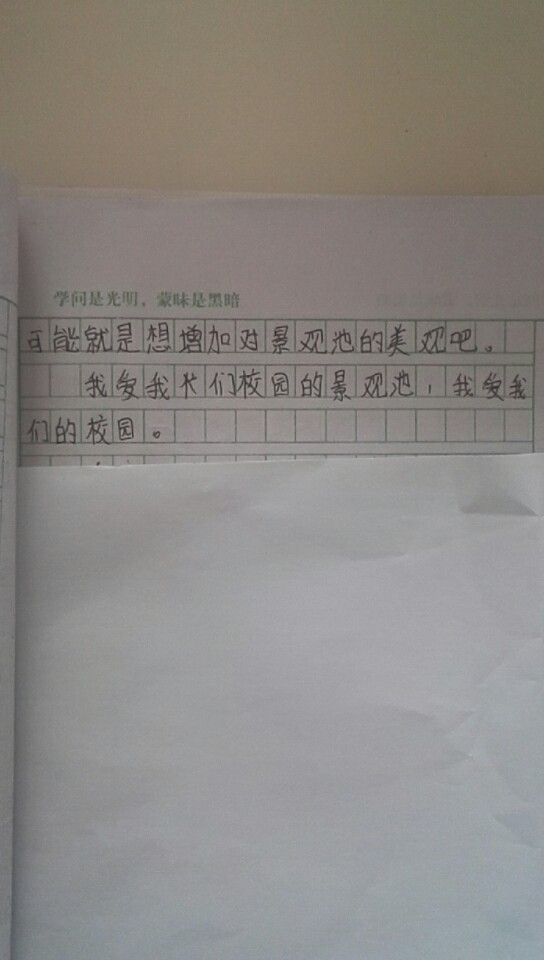 学问是光明，蒙昧是黑暗
可能就是想增加对景观池的美观吧。
我爱我们校园的景观池，我爱我
们的校园。